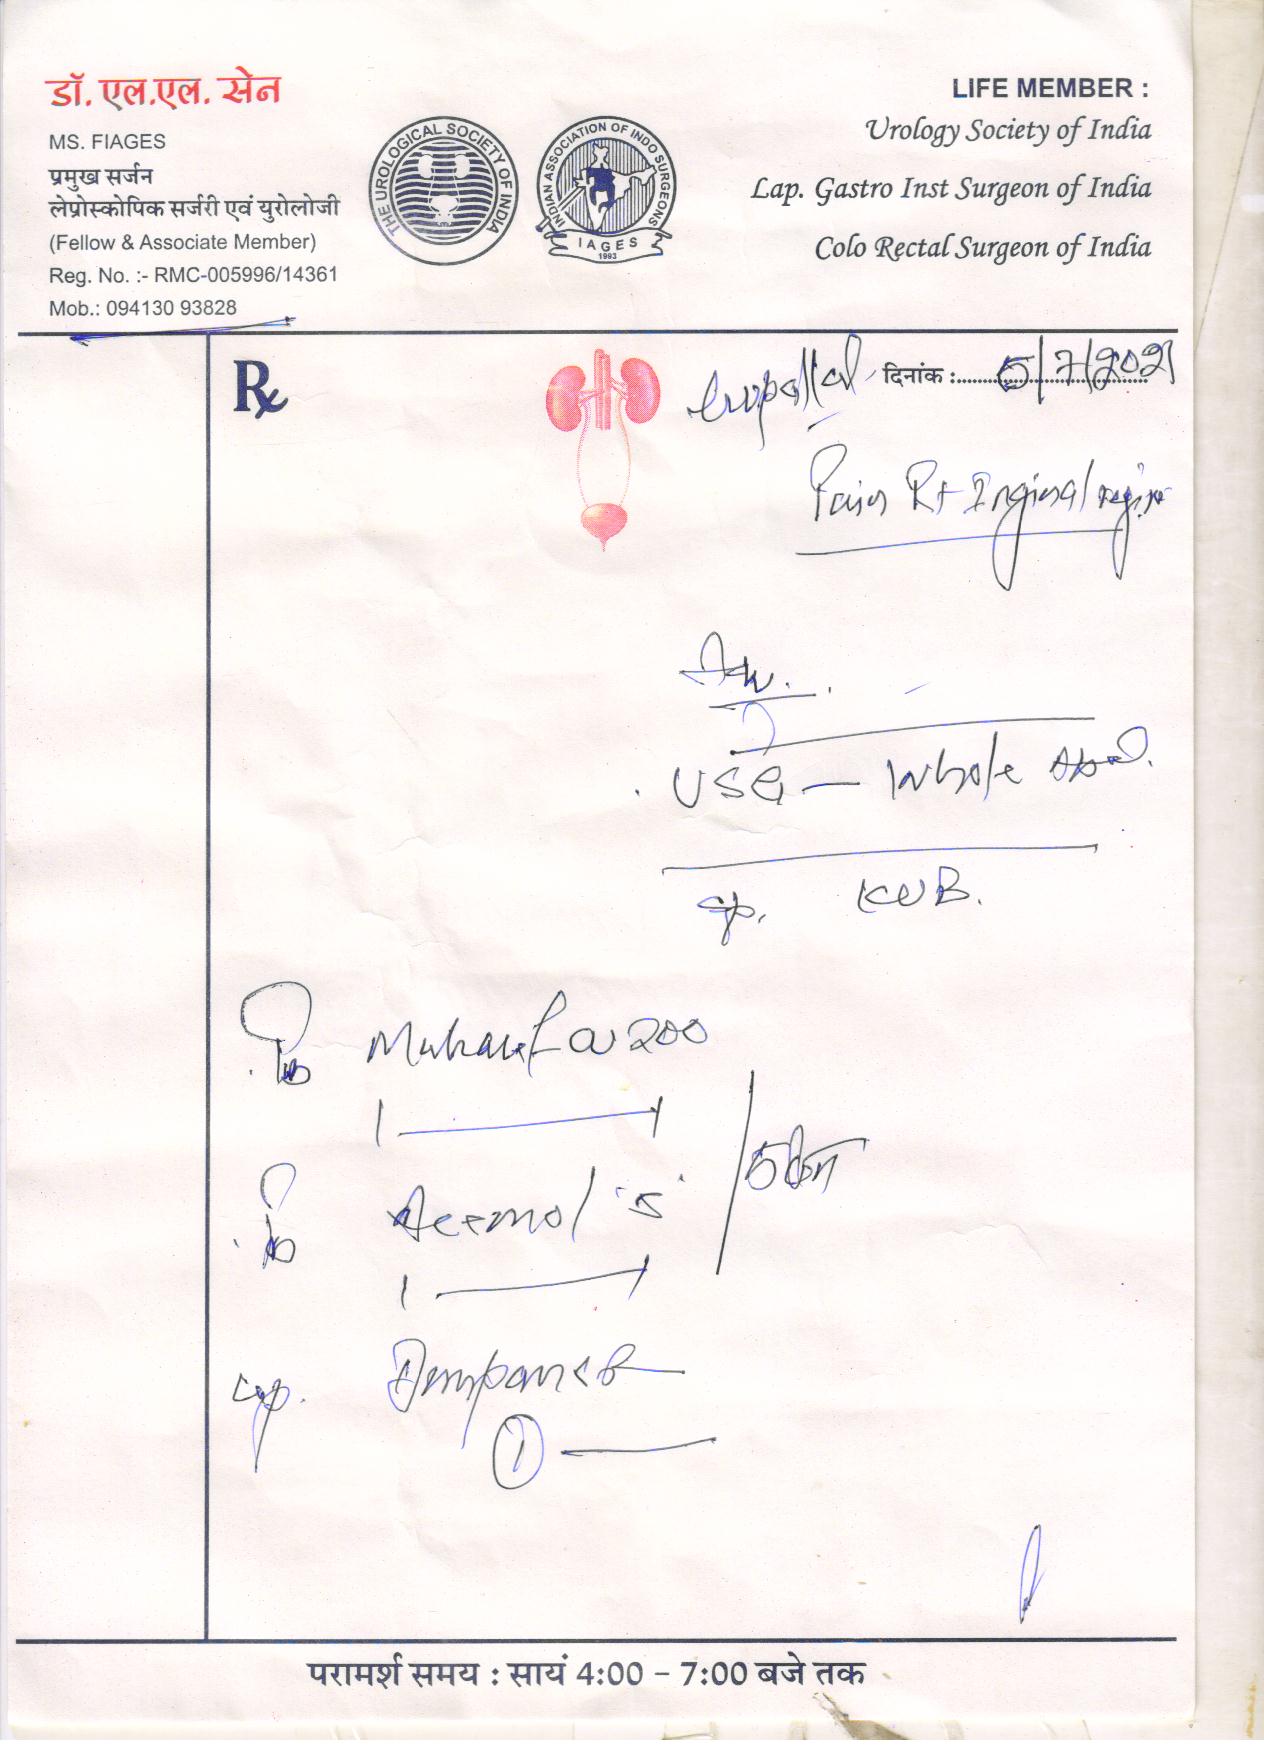 डॉ. एल.एल. सेन
MS. FIAGES
प्रमुख सर्जन
लेप्रोस्कोपिक सर्जरी एवं युरोलोजी
(Fellow & Associate Member)
Reg. No. :- RMC-005996/14361
Mob.: 094130 93828
THE UROLOGICAL SOCIETY OF INDIA
INDIAN ASSOCIATION OF INDO SURGEONS
IAGES
1993
LIFE MEMBER :
Urology Society of India
Lap. Gastro Inst Surgeon of India
Colo Rectal Surgeon of India
Rx
दिनांक : 5/7/2021
Pain Rt Inginal region
USG – Whole Abd.
KUB.
200
1 — 1
'5'
5 दिन
1 — 1
cap.
1 —
परामर्श समय : सायं 4:00 – 7:00 बजे तक